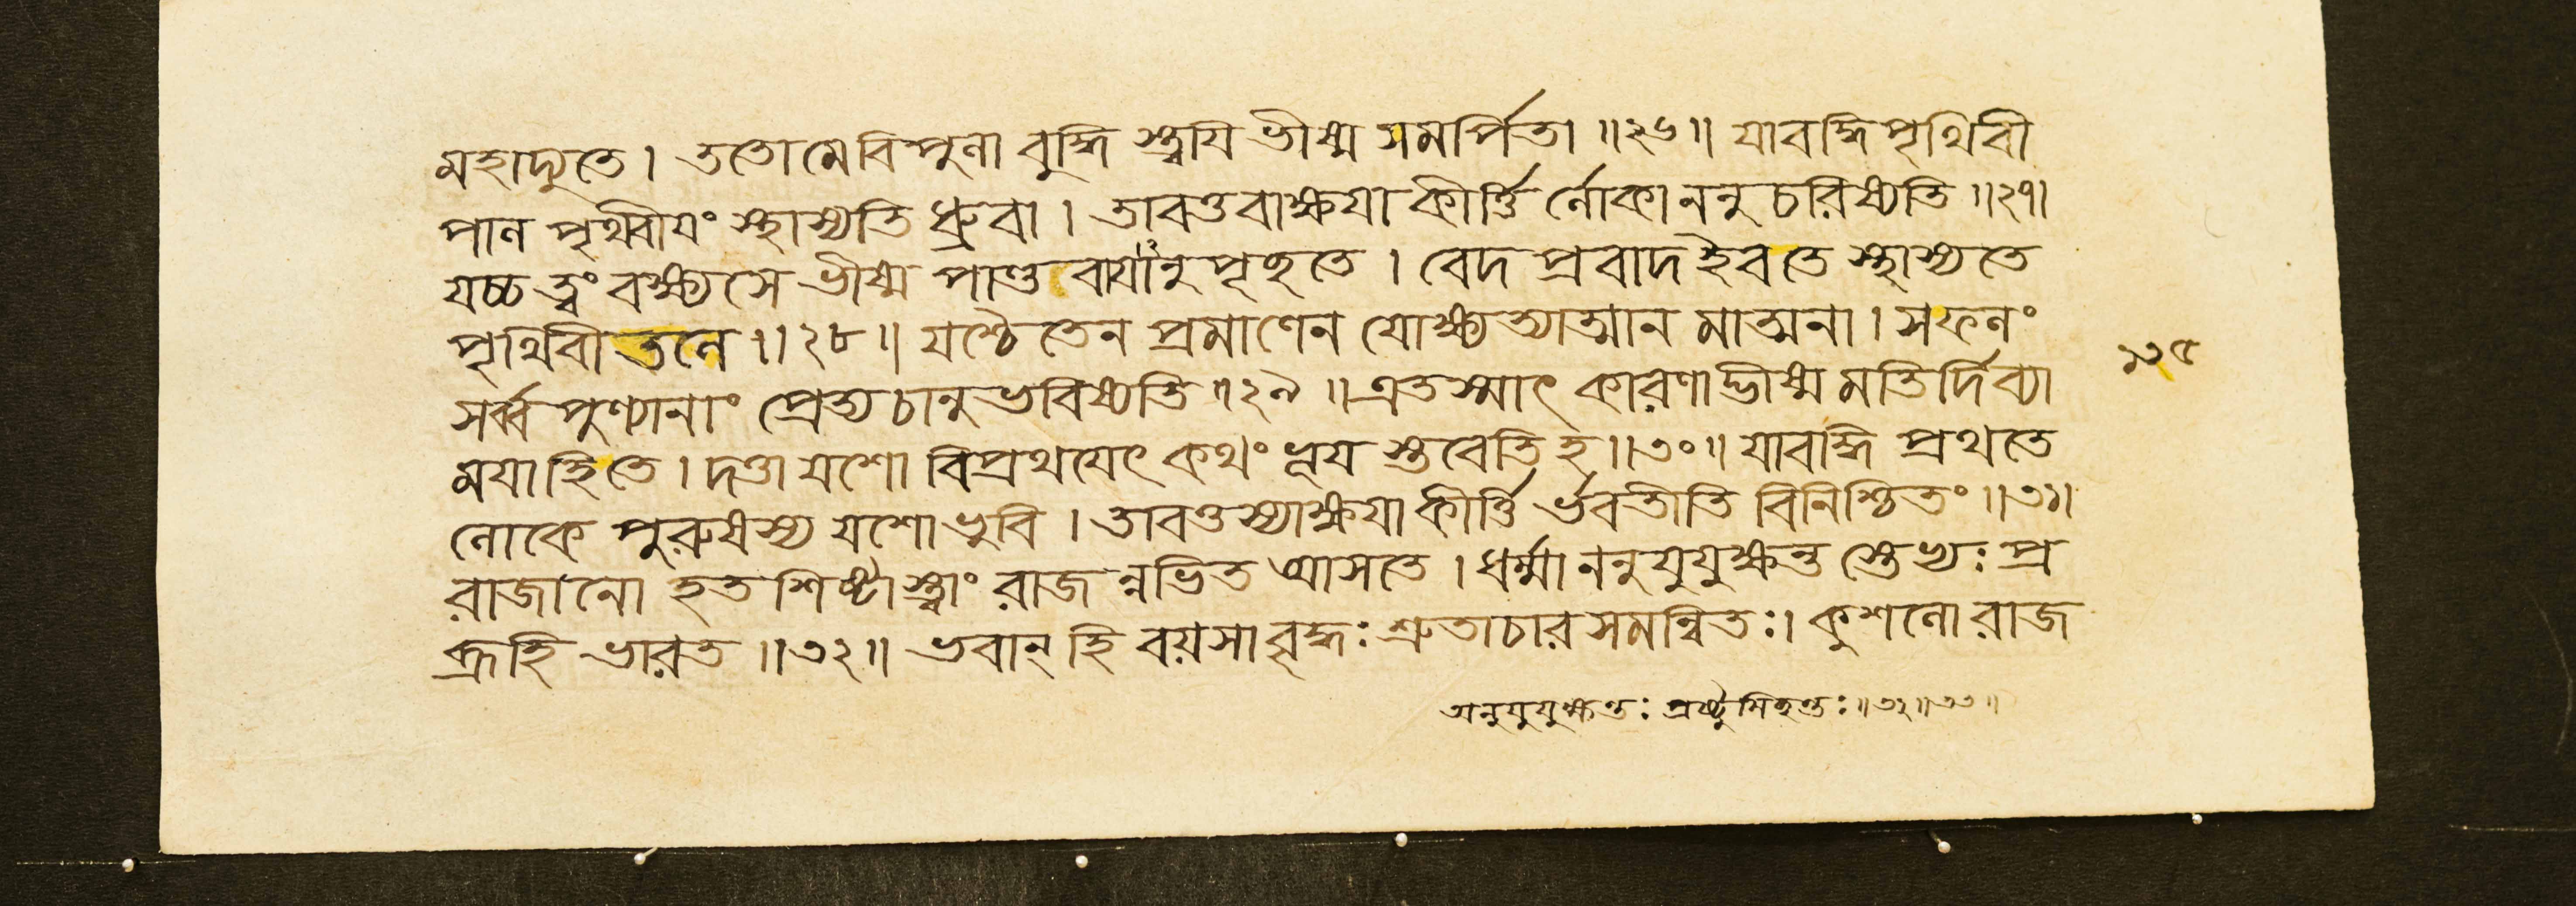 মহাদ্যুতে। ততো মে বিপুলা বুদ্ধি স্ত্বযি ভীষ্ম সমর্পিতা ॥২৬॥ যাবদ্ধি পৃথিবী
পাল পৃথ্বীযং স্থাস্যতি ধ্রুবা। তাবত্তবাক্ষযা কীর্ত্তি র্লোকাননুচরিষ্যতি ॥২৭॥
যচ্চ ত্বং বক্ষ্যসে ভীষ্ম পাণ্ডবাযানুপৃচ্ছতে। বেদ প্রবাদ ইব তে স্থাস্যতে
পৃথিবী তলে ॥২৮॥ যশ্চৈতেন প্রমাণেন যোক্ষ্যত্যাত্মান মাত্মনা। স ফলং
সর্ব্ব পুণ্যানাং প্রেত্য চানুভবিষ্যতি ॥২৯॥ এতস্মাৎ কারণাদ্ভীষ্ম মতির্দিব্যা
মযা হি তে। দত্তা যশো বিপ্রথযেৎ কথং ভূয স্তবেতি হ ॥৩০॥ যাবদ্ধি প্রথতে
লোকে পুরুষস্য যশো ভুবি। তাবত্তস্যাক্ষযা কীর্ত্তি র্ভবতীতি বিনিশ্চিতং ॥৩১॥
রাজানো হত শিষ্টাস্ত্বাং রাজন্নভিত আসতে। ধর্ম্মাননুযুযুক্ষন্ত স্তেভ্যঃ প্র
ব্রূহি ভারত ॥৩২॥ ভবান্ হি বয়সা বৃদ্ধঃ শ্রুতাচার সমন্বিতঃ। কুশলো রাজ
অনুযুযুক্ষন্তঃ প্রষ্টুমিচ্ছন্তঃ ॥৩২॥৩৩॥